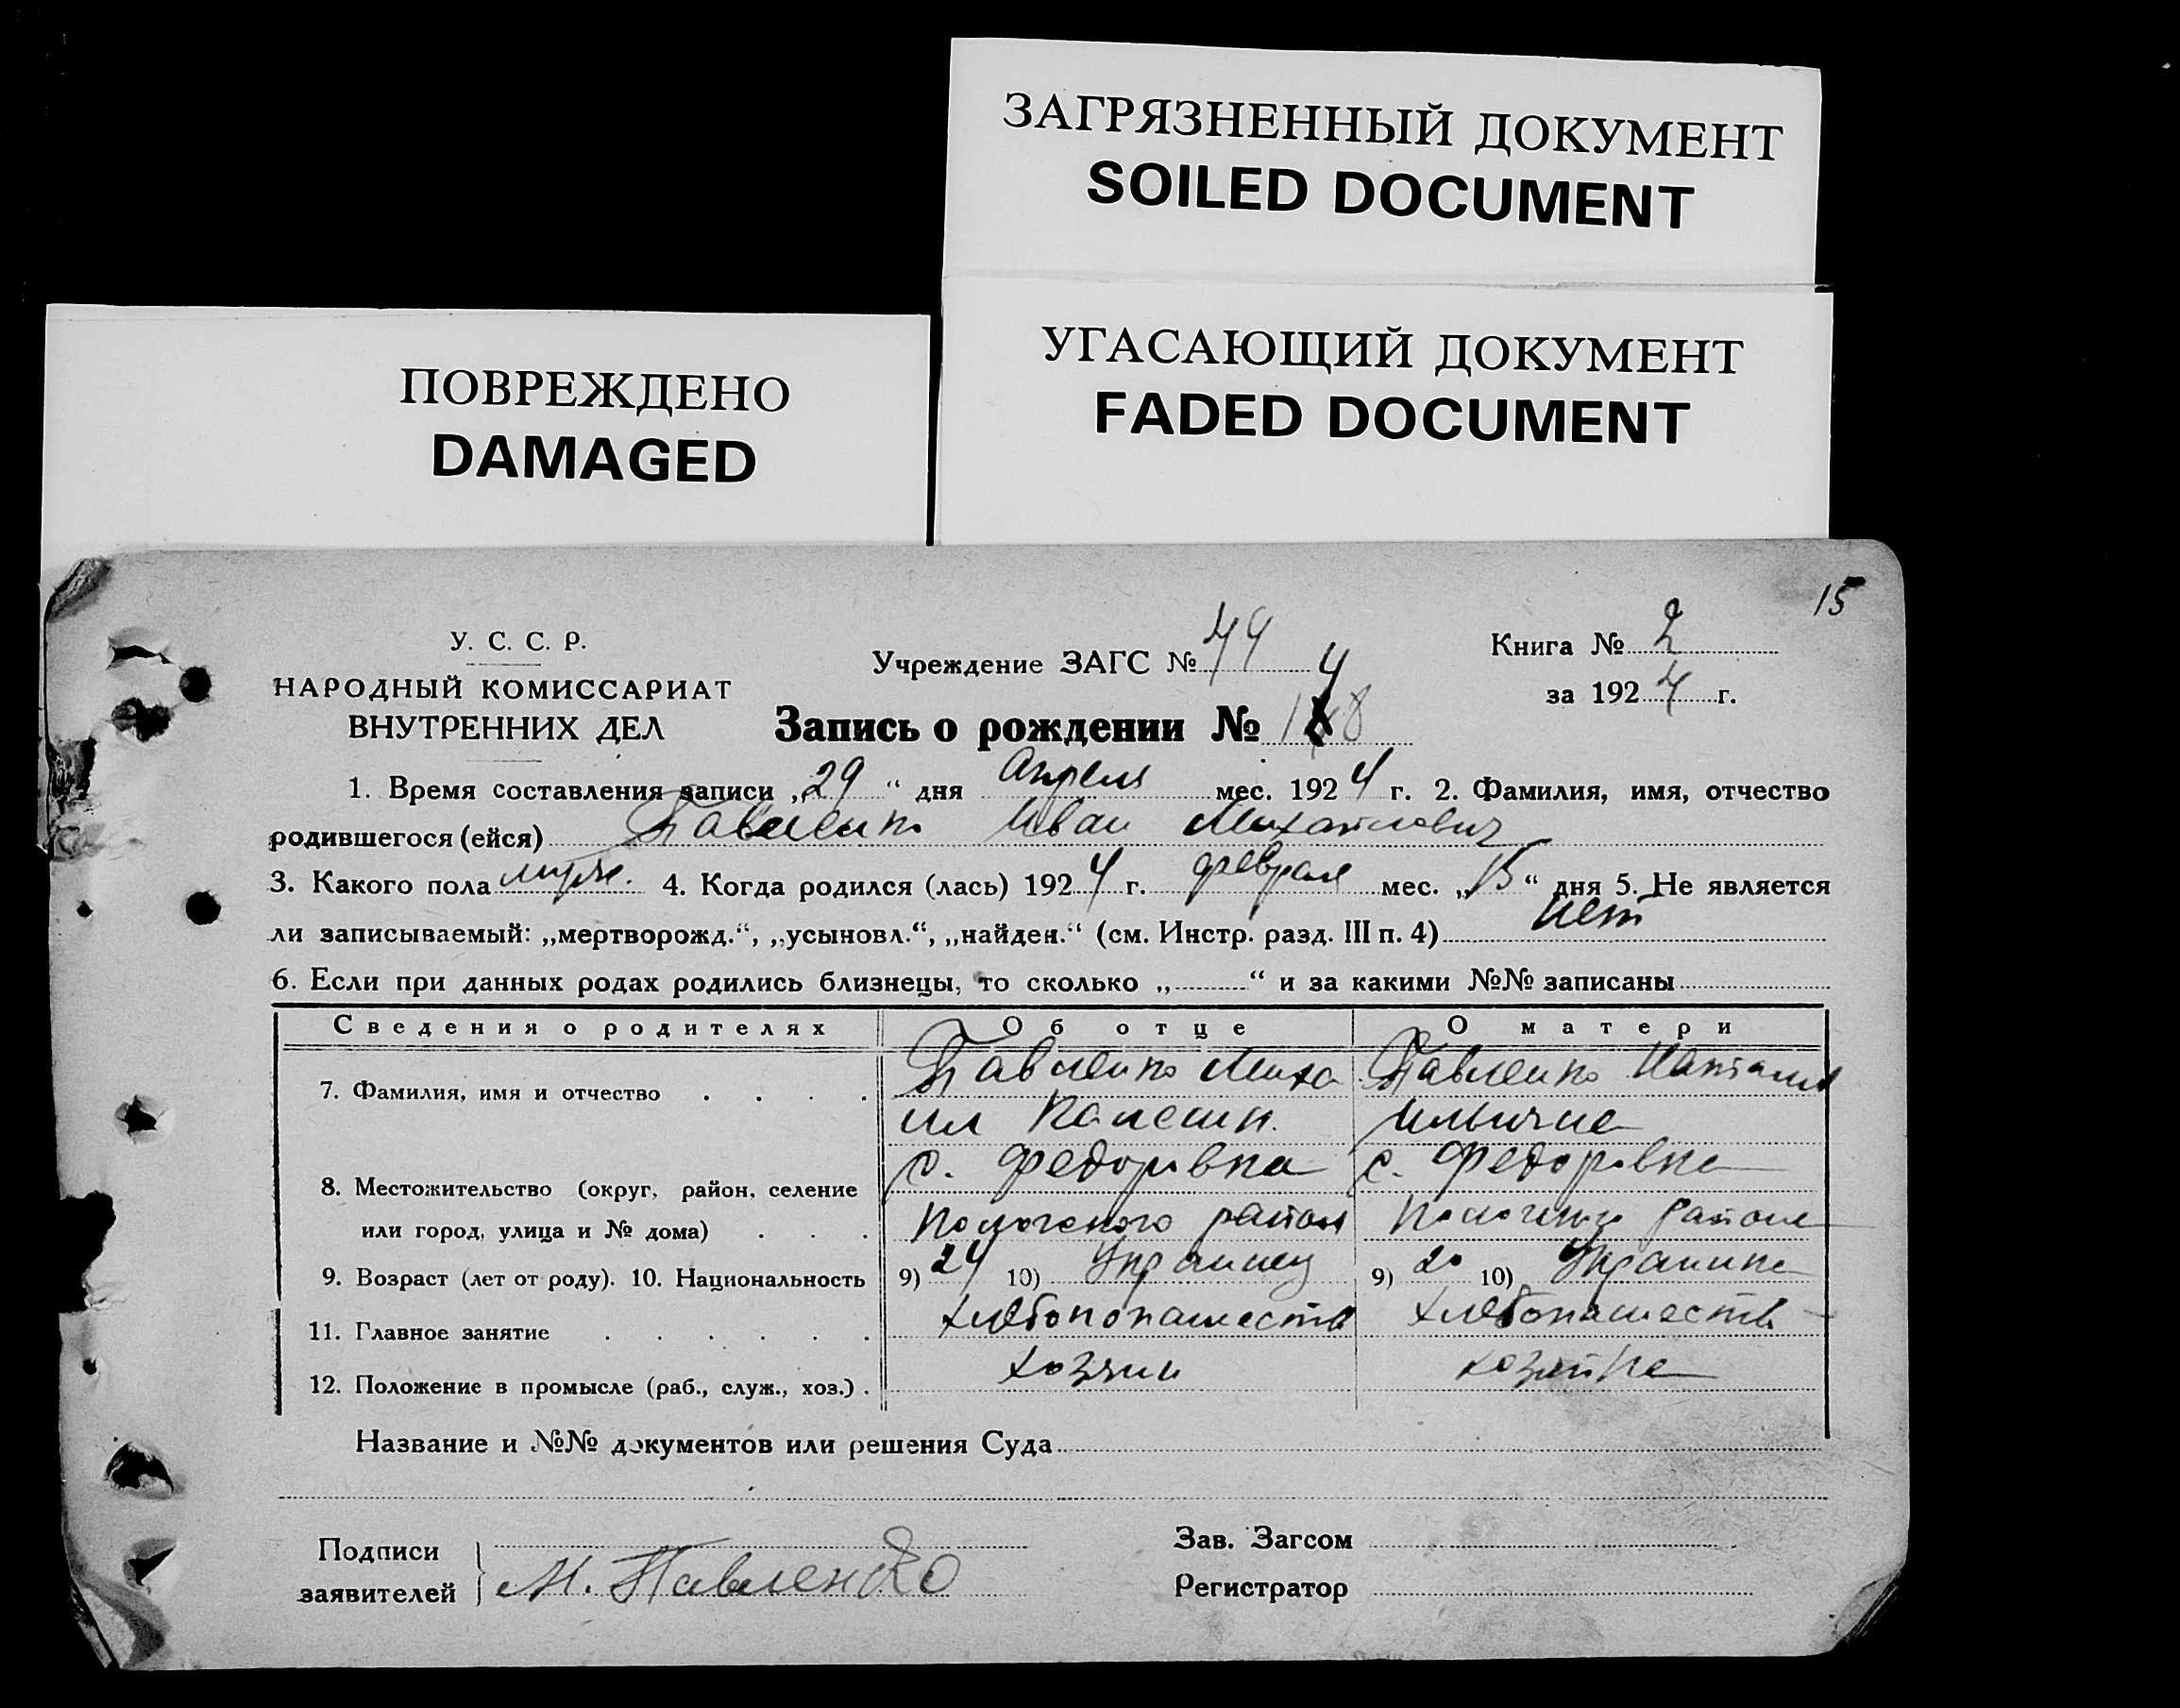 ЗАГРЯЗНЕННЫЙ ДОКУМЕНТ
SOILED DOCUMENT
УГАСАЮЩИЙ ДОКУМЕНТ
FADED DOCUMENT
ПОВРЕЖДЕНО
DAMAGED
15
У. С. С. Р.
НАРОДНЫЙ КОМИССАРИАТ
ВНУТРЕННИХ ДЕЛ
Учреждение ЗАГС №
Книга № 2
за 1924 г.
Запись о рождении №
1. Время составления записи „29“ дня Апреля мес. 1924 г. 2. Фамилия, имя, отчество
родившегося (ейся) Павленко Иван Михайлович
3. Какого пола муж. 4. Когда родился (лась) 1924 г. февраля мес. „15“ дня 5. Не является
ли записываемый: „мертворожд.“, „усыновл.“, „найден.“ (см. Инстр. разд. III п. 4) Нет
6. Если при данных родах родились близнецы, то сколько „ “ и за какими №№ записаны
Сведения о родителях Об отце О матери
7. Фамилия, имя и отчество Павленко Миха Павленко Наталия
ил
с. Федоровка с. Федоровка
8. Местожительство (округ, район, селение
или город, улица и № дома) района района
9. Возраст (лет от роду). 10. Национальность 9) 24 10) Украинец 9) 20 10) Украинка
11. Главное занятие
12. Положение в промысле (раб., служ., хоз.). хозяин хозяйка
Название и №№ документов или решения Суда
Подписи
заявителей М. Павленко
Зав. Загсом
Регистратор